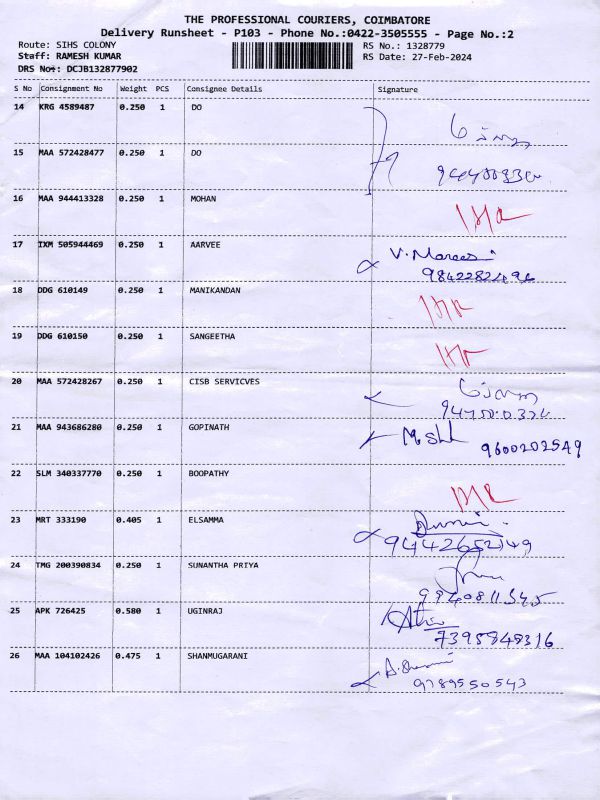 THE PROFESSIONAL COURIERS, COIMBATORE
Delivery Runsheet - P103 - Phone No.:0422-3505555 - Page No.:2
Route: SIHS COLONY RS No.: 1328779
Staff: RAMESH KUMAR RS Date: 27-Feb-2024
DRS No: DCJB132877902
S No Consignment No Weight PCS Consignee Details Signature
14 KRG 4589487 0.250 1 DO
15 MAA 572428477 0.250 1 DO
16 MAA 944413328 0.250 1 MOHAN
17 IXM 505944469 0.250 1 AARVEE
18 DDG 610149 0.250 1 MANIKANDAN
19 DDG 610150 0.250 1 SANGEETHA
20 MAA 572428267 0.250 1 CISB SERVICVES
21 MAA 943686280 0.250 1 GOPINATH
9600202549
22 SLM 340337770 0.250 1 BOOPATHY
23 MRT 333190 0.405 1 ELSAMMA
9442652149
24 TMG 200390834 0.250 1 SUNANTHA PRIYA
25 APK 726425 0.580 1 UGINRAJ
7395848316
26 MAA 104102426 0.475 1 SHANMUGARANI
9789550543